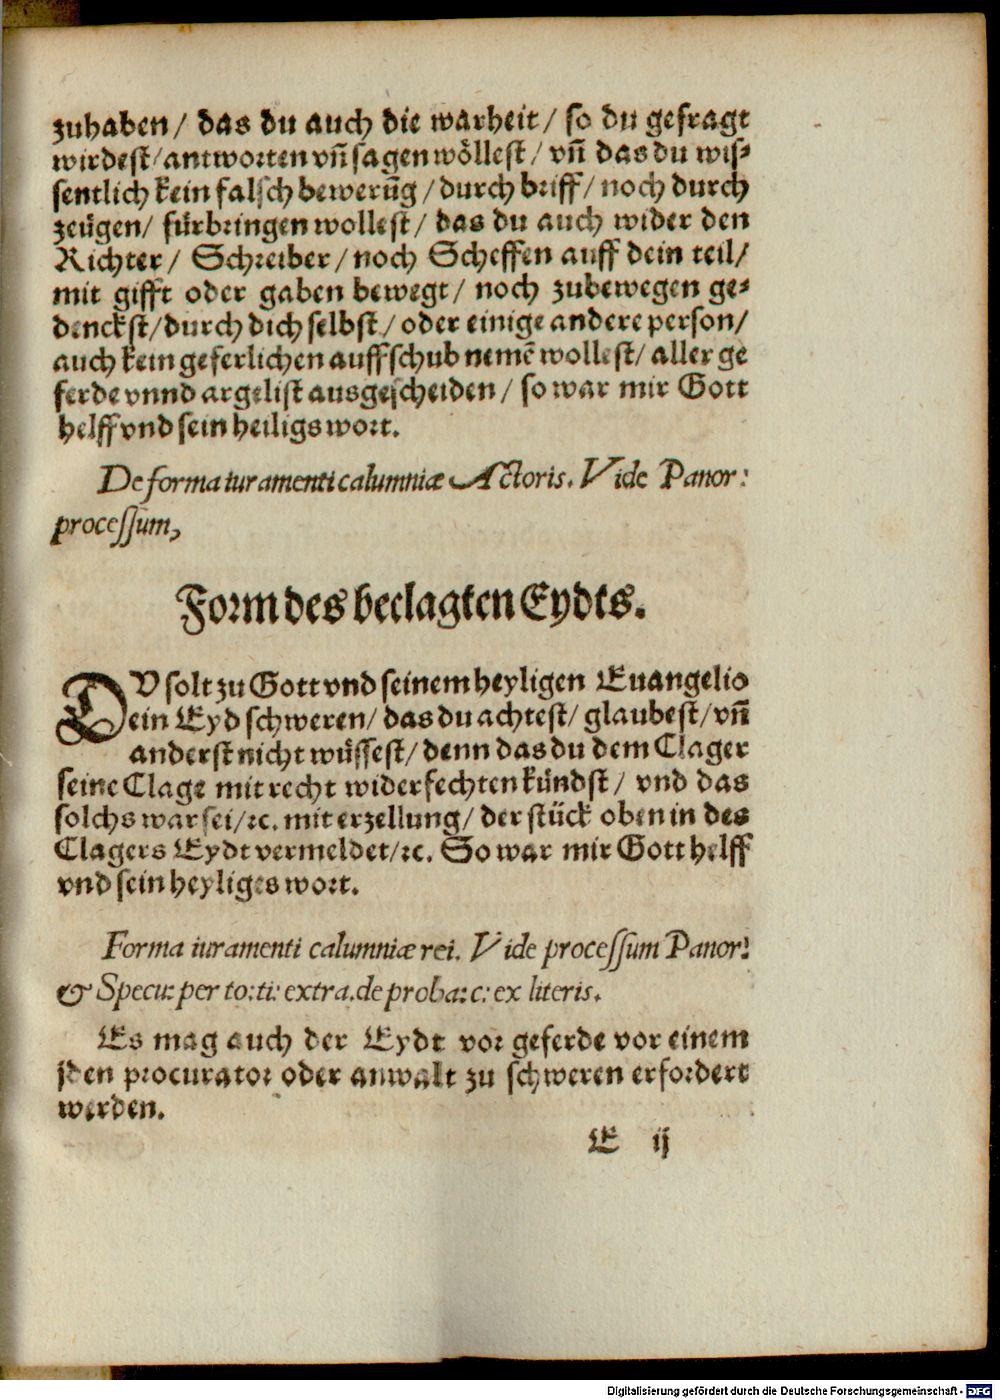 zuhaben/ das du auch die warheit/ so du gefragt
wirdest/antworten vñ sagen wöllest/ vñ das du wis⸗
sentlich kein falsch bewerũg/durch briff/noch durch
zeügen/ fürbringen wollest/ das du auch wider den
Richter/ Schreiber/noch Scheffen auff dein teil/
mit gifft oder gaben bewegt/ noch zubewegen ge⸗
denckst/durch dich selbst/oder einige andere person/
auch kein geferlichen auffschub nemē wollest/aller ge
ferde vnnd argelist ausgescheiden/ so war mir Gott
helff vnd sein heiligs wort.
De forma iuramenti calumniæ Actoris. Vide Panor:
processum,
Form des beclagten Eydts.
DV solt zu Gott vnd seinem heyligen Euangelio
ein Eyd schweren/das du achtest/glaubest/vñ
anderst nicht wüssest/denn das du dem Clager
seine Clage mit recht widerfechten kündst/ vnd das
solchs war sei/ꝛc. mit erzellung/der stück oben in des
Clagers Eydt vermeldet/ꝛc. So war mir Gott helff
vnd sein heyliges wort.
Forma iuramenti calumniæ rei. Vide processum Panor:
& Specu: per to: ti: extra. de proba: c: ex literis.
Es mag auch der Eydt vor geferde vor einem
jden procurator oder anwalt zu schweren erfordert
werden.
E ij
Digitalisierung gefördert durch die Deutsche Forschungsgemeinschaft - DFG